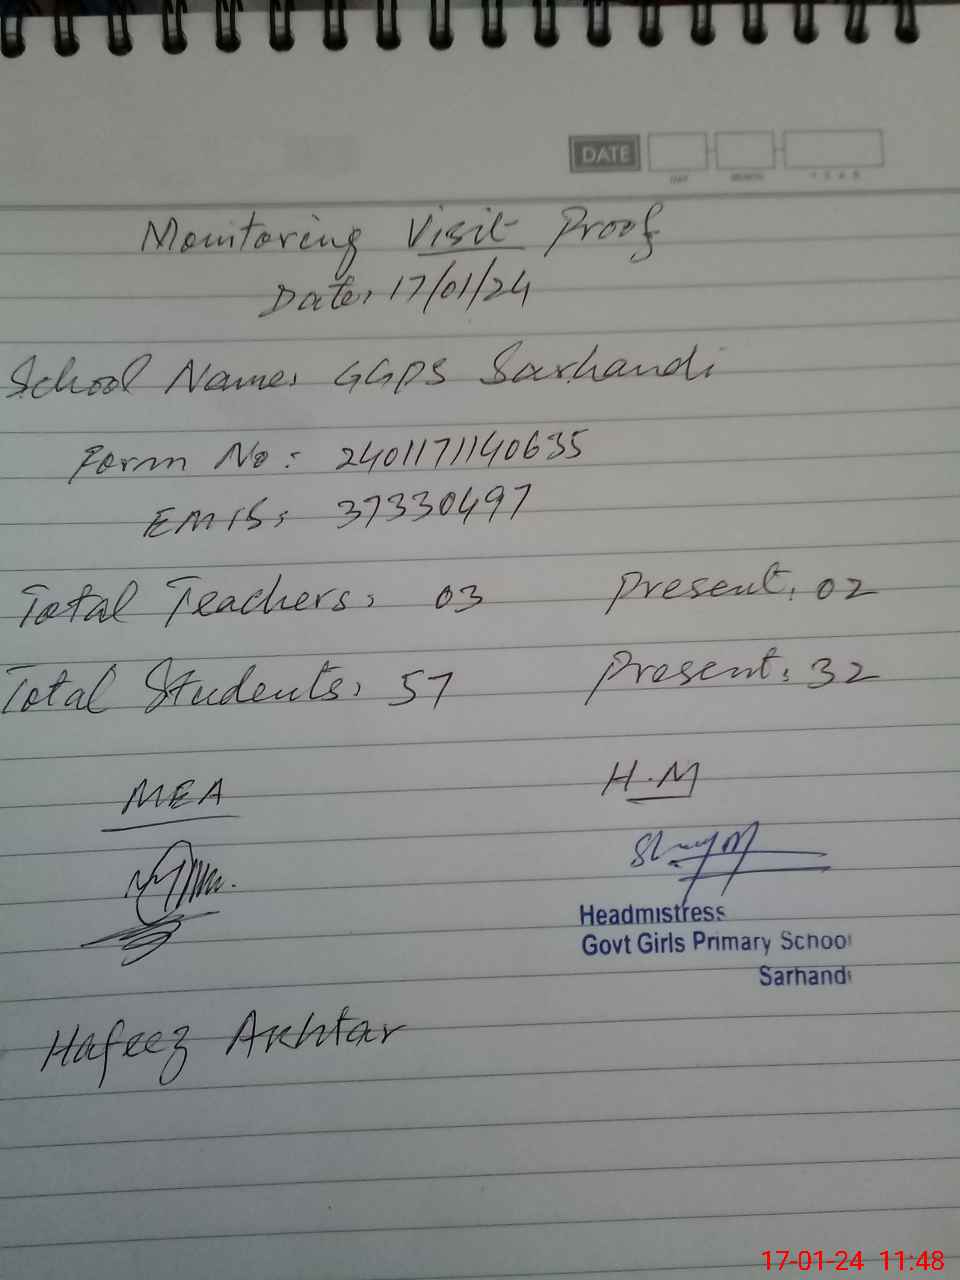 DATE
Monitoring Visit Proof
Date: 17/01/24
School Name: GGPS Sarhandi
Form No: 2401171140635
EMIS: 37330497
Total Teachers: 03 Present: 02
Total Students: 57 Present: 32
MEA H.M
Headmistress
Govt Girls Primary School
Sarhandi
Hafeez Akhtar
17-01-24 11:48